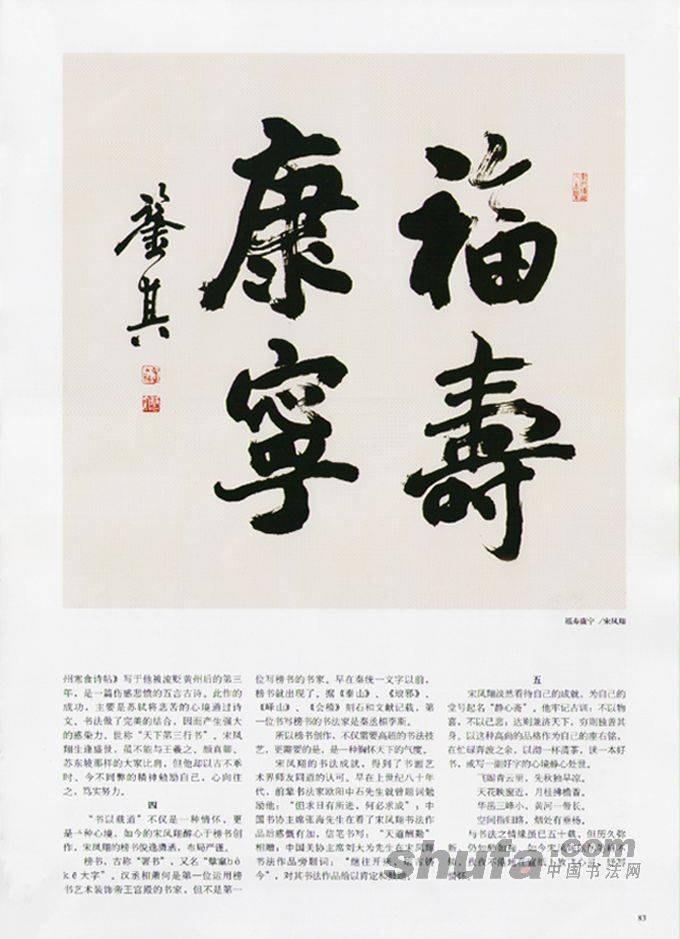 福壽
康寧
鑾其
福寿康宁 / 宋凤翔
州寒食诗帖》写于他被流贬黄州后的第三
年，是一篇伤感悲愤的五言古诗。此作的
成功，主要是苏轼将悲苦的心境通过诗
文、书法做了完美的结合，因而产生强大
的感染力。世称“天下第三行书”。宋凤
翔生逢盛世，虽不能与王羲之、颜真卿、
苏东坡那样的大家比肩，但他却以古不乖
时、今不同弊的精神勉励自己，心向往
之，笃实努力。
四
“书以载道”不仅是一种情怀，更
是一种心境。如今的宋凤翔醉心于榜书创
作，宋凤翔的榜书俊逸潇洒，布局严谨。
榜书，古称“署书”，又名“擘窠bò
kē大字”。汉丞相萧何是第一位运用榜
书艺术装饰帝王宫殿的书家，但不是第一
位写榜书的书家。早在秦统一文字以前，
榜书就出现了。据《泰山》、《琅琊》、
《峄山》、《会稽》刻石和文献记载，第
一位书写榜书的书法家是秦丞相李斯。
所以榜书创作，不仅需要高超的书法技
艺，更需要的是，是一种胸怀天下的气度。
宋凤翔的书法成就，得到了书画艺
术界师友同道的认可。早在上世纪八十年
代，前辈书法家欧阳中石先生就曾题词勉
励他：“但求日有所进，何必求成”；中
国书协主席张海先生在看了宋凤翔书法作
品后感慨有加，信笔书写：“天道酬勤”
相赠；中国美协主席刘大为先生在宋凤翔
书法作品旁题词：“继往开来
今”，对其书法作品给以肯定和鼓励。
五
宋凤翔淡然看待自己的成就，为自己的
堂号起名“静心斋”。他牢记古训：不以物
喜，不以己悲；达则兼济天下，穷则独善其
身。以这种高尚的品格作为自己的座右铭，
在忙碌奔波之余，以沏一杯清茶，读一本好
书，或写一副好字的心境静心处世。
飞阁青云里，先秋独早凉。
天花映窗近，月桂拂檐香。
华岳三峰小，黄河一带长。
空间指归路，烟处有垂杨。
与书法之情缘虽已五十载，但历久弥
新，仍如勉
shufa.com
中国书法网
83